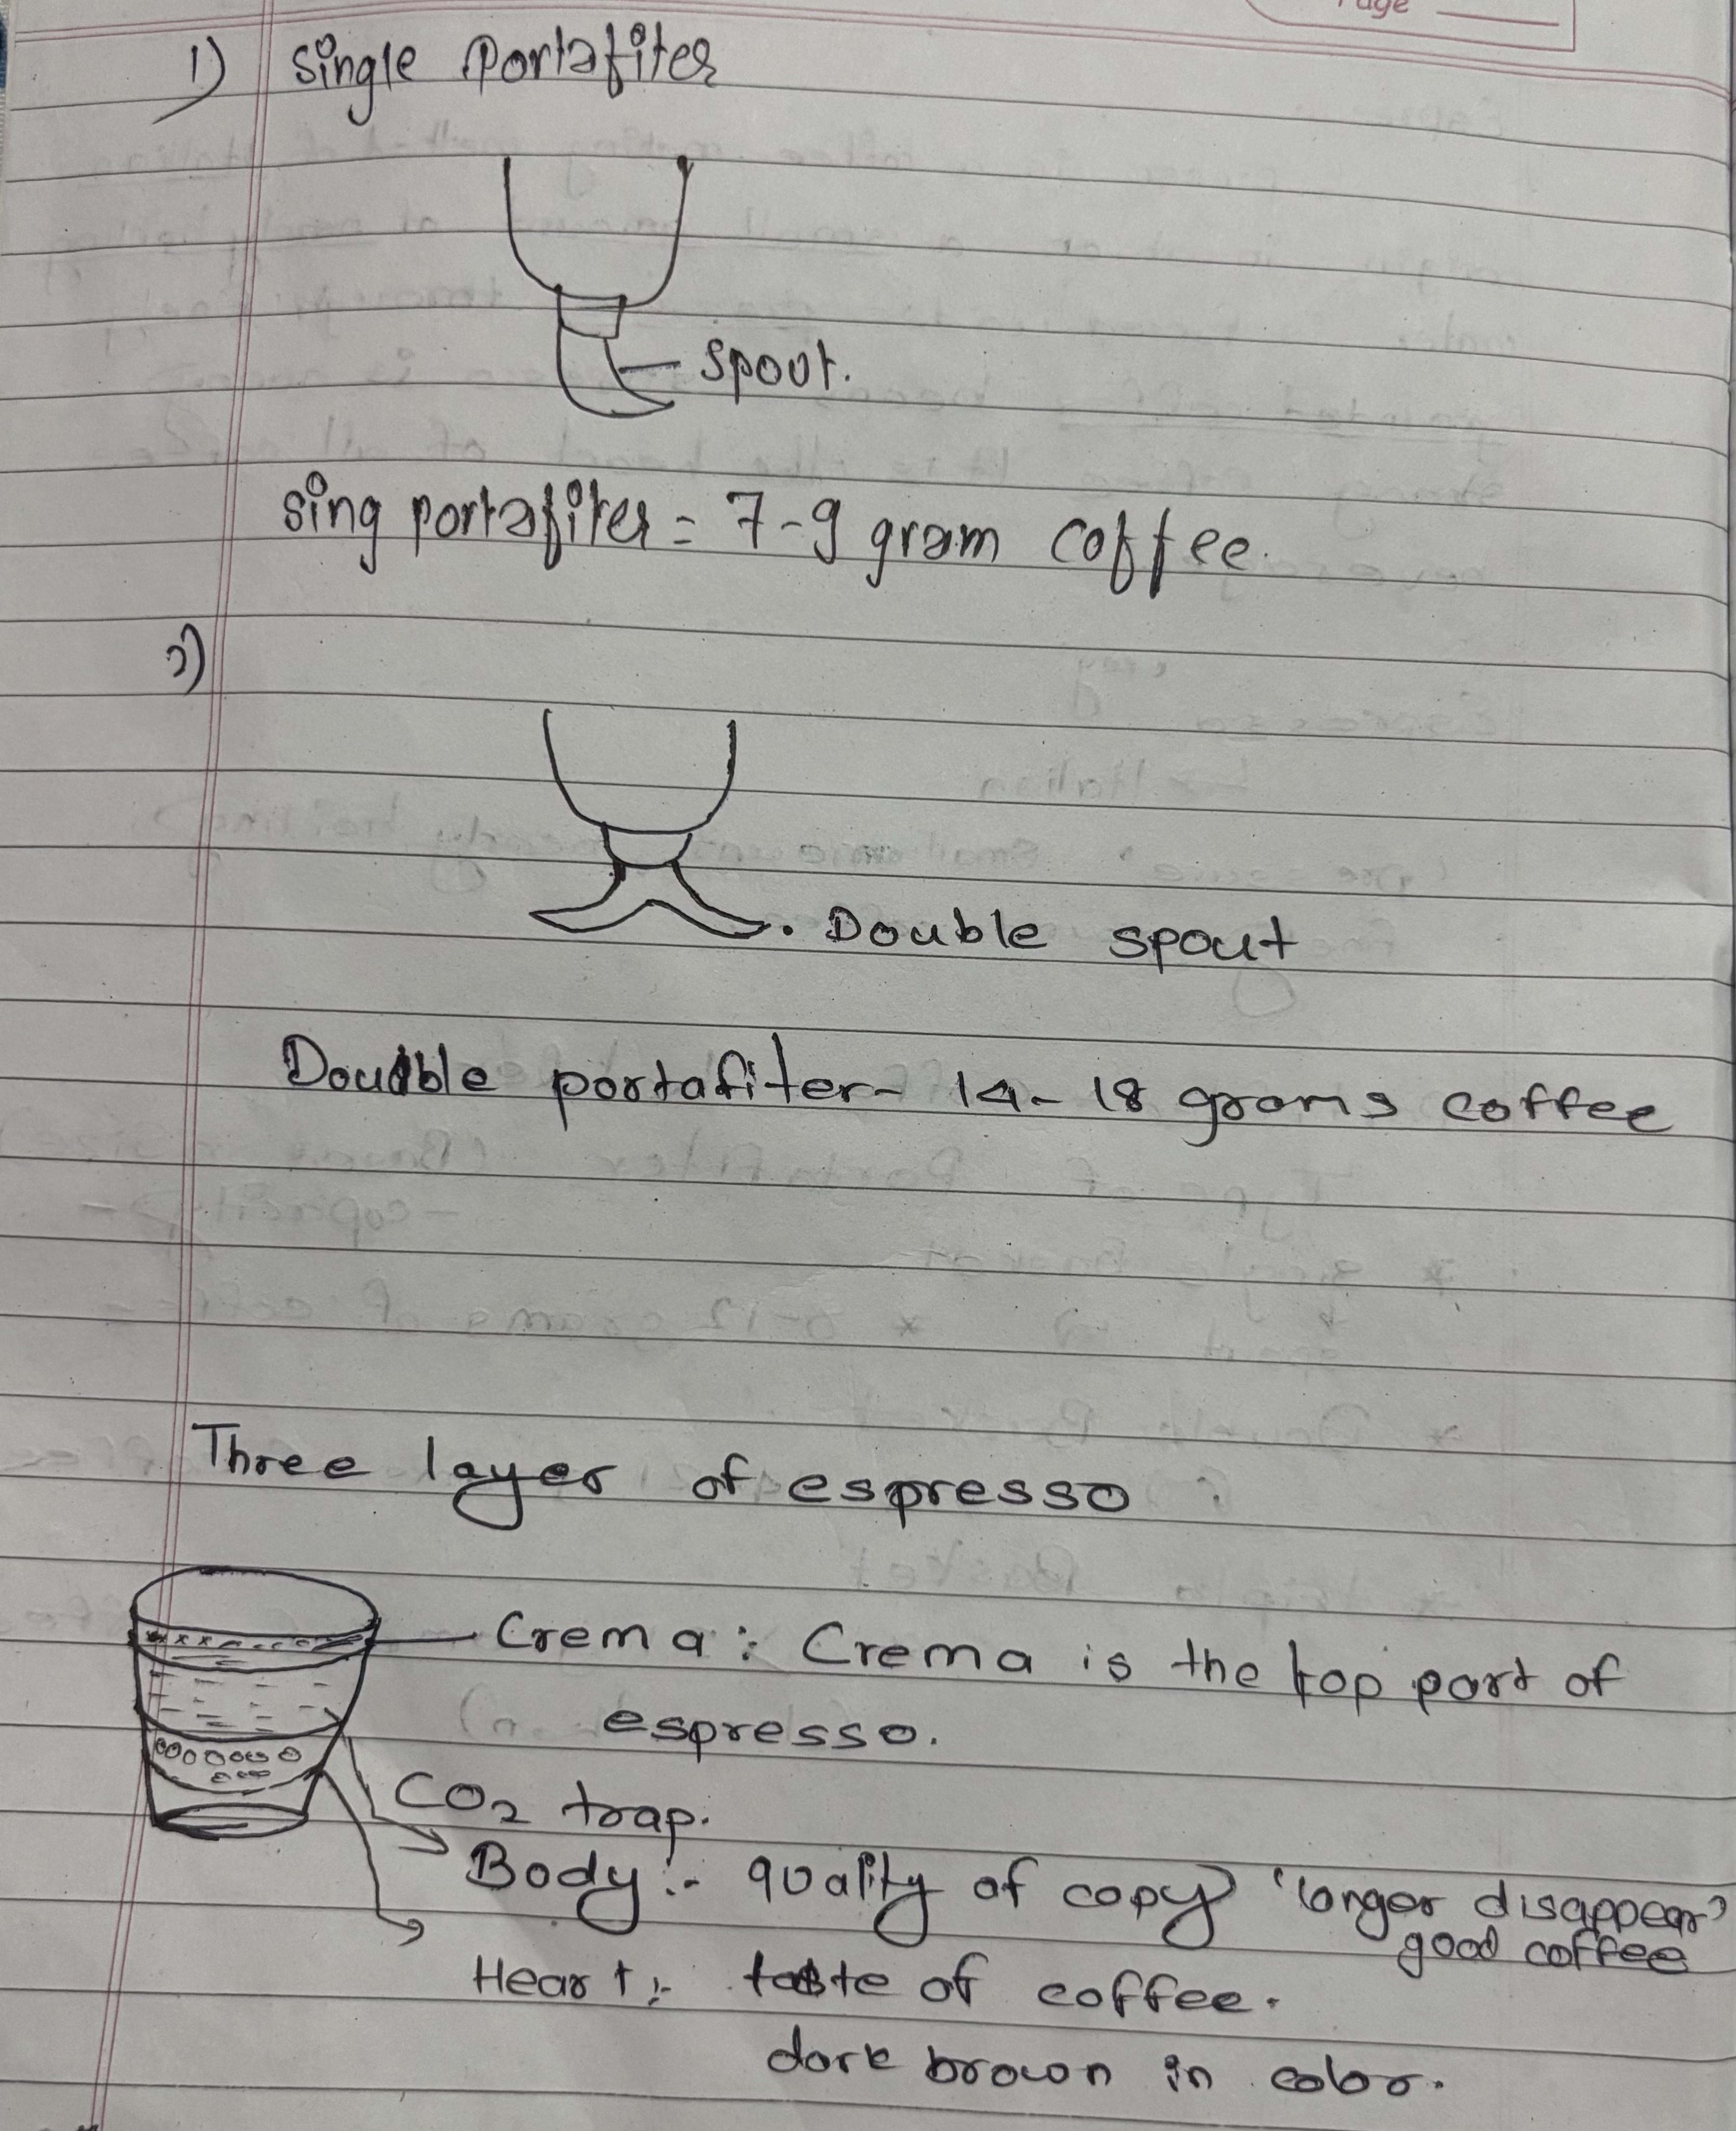 Page
1) Single Portafiter
spout.
sing portafiter = 7-9 gram coffee.
2)
Double spout
Double portafiter- 14-18 grams coffee
Three layer of espresso :
Crema : Crema is the top part of
espresso.
CO2 trap.
Body :- quality of copy 'longer disappear'
good coffee
Heart :- taste of coffee.
dark brown in color.